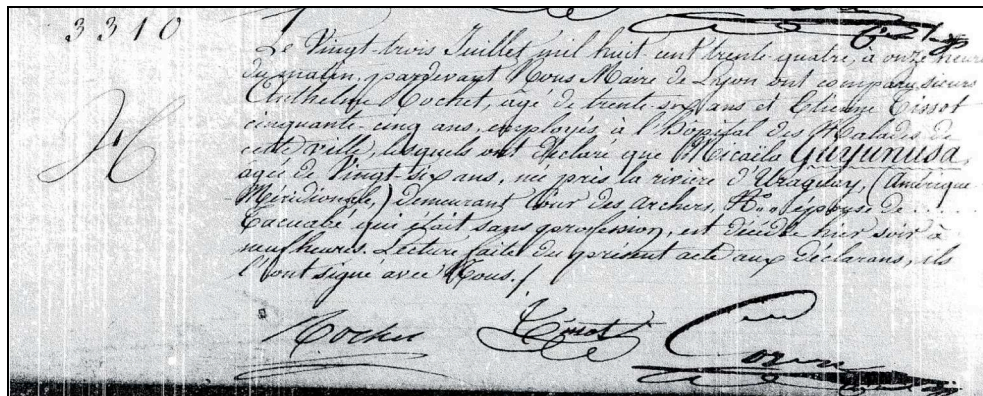 3310
Le Vingt-trois Juillet mil huit cent trente-quatre, à onze heures
du matin, pardevant Nous Maire de Lyon ont comparu sieurs
Anthelme Rochet, agé de trente-six ans et Etienne Tissot
cinquante-cinq ans, employés à l'hôpital des Malades de
cette ville, lesquels ont déclaré que Micaëla Guyunusa,
agée de Vingt-six ans, née près la rivière d'Uraguay, (Amérique
Méridionale,) demeurant Cour des Archers, N° .. épouse de ....
Tacuabé qui était sans profession, est décédée hier soir à
neuf heures. Lecture faite du présent acte aux déclarans, ils
l'ont signé avec Nous./
H
Rochet Tissot